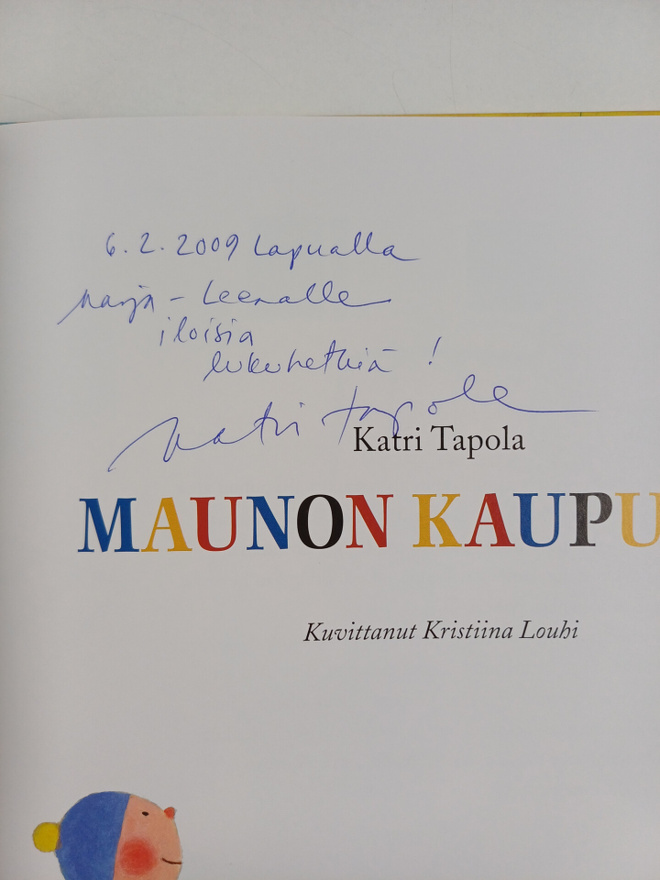 6.2.2009 Lapualla
Marja-Leenalle
iloisia
lukuhetkiä !
Katri Tapola
Katri Tapola
MAUNON KAUPU
Kuvittanut Kristiina Louhi